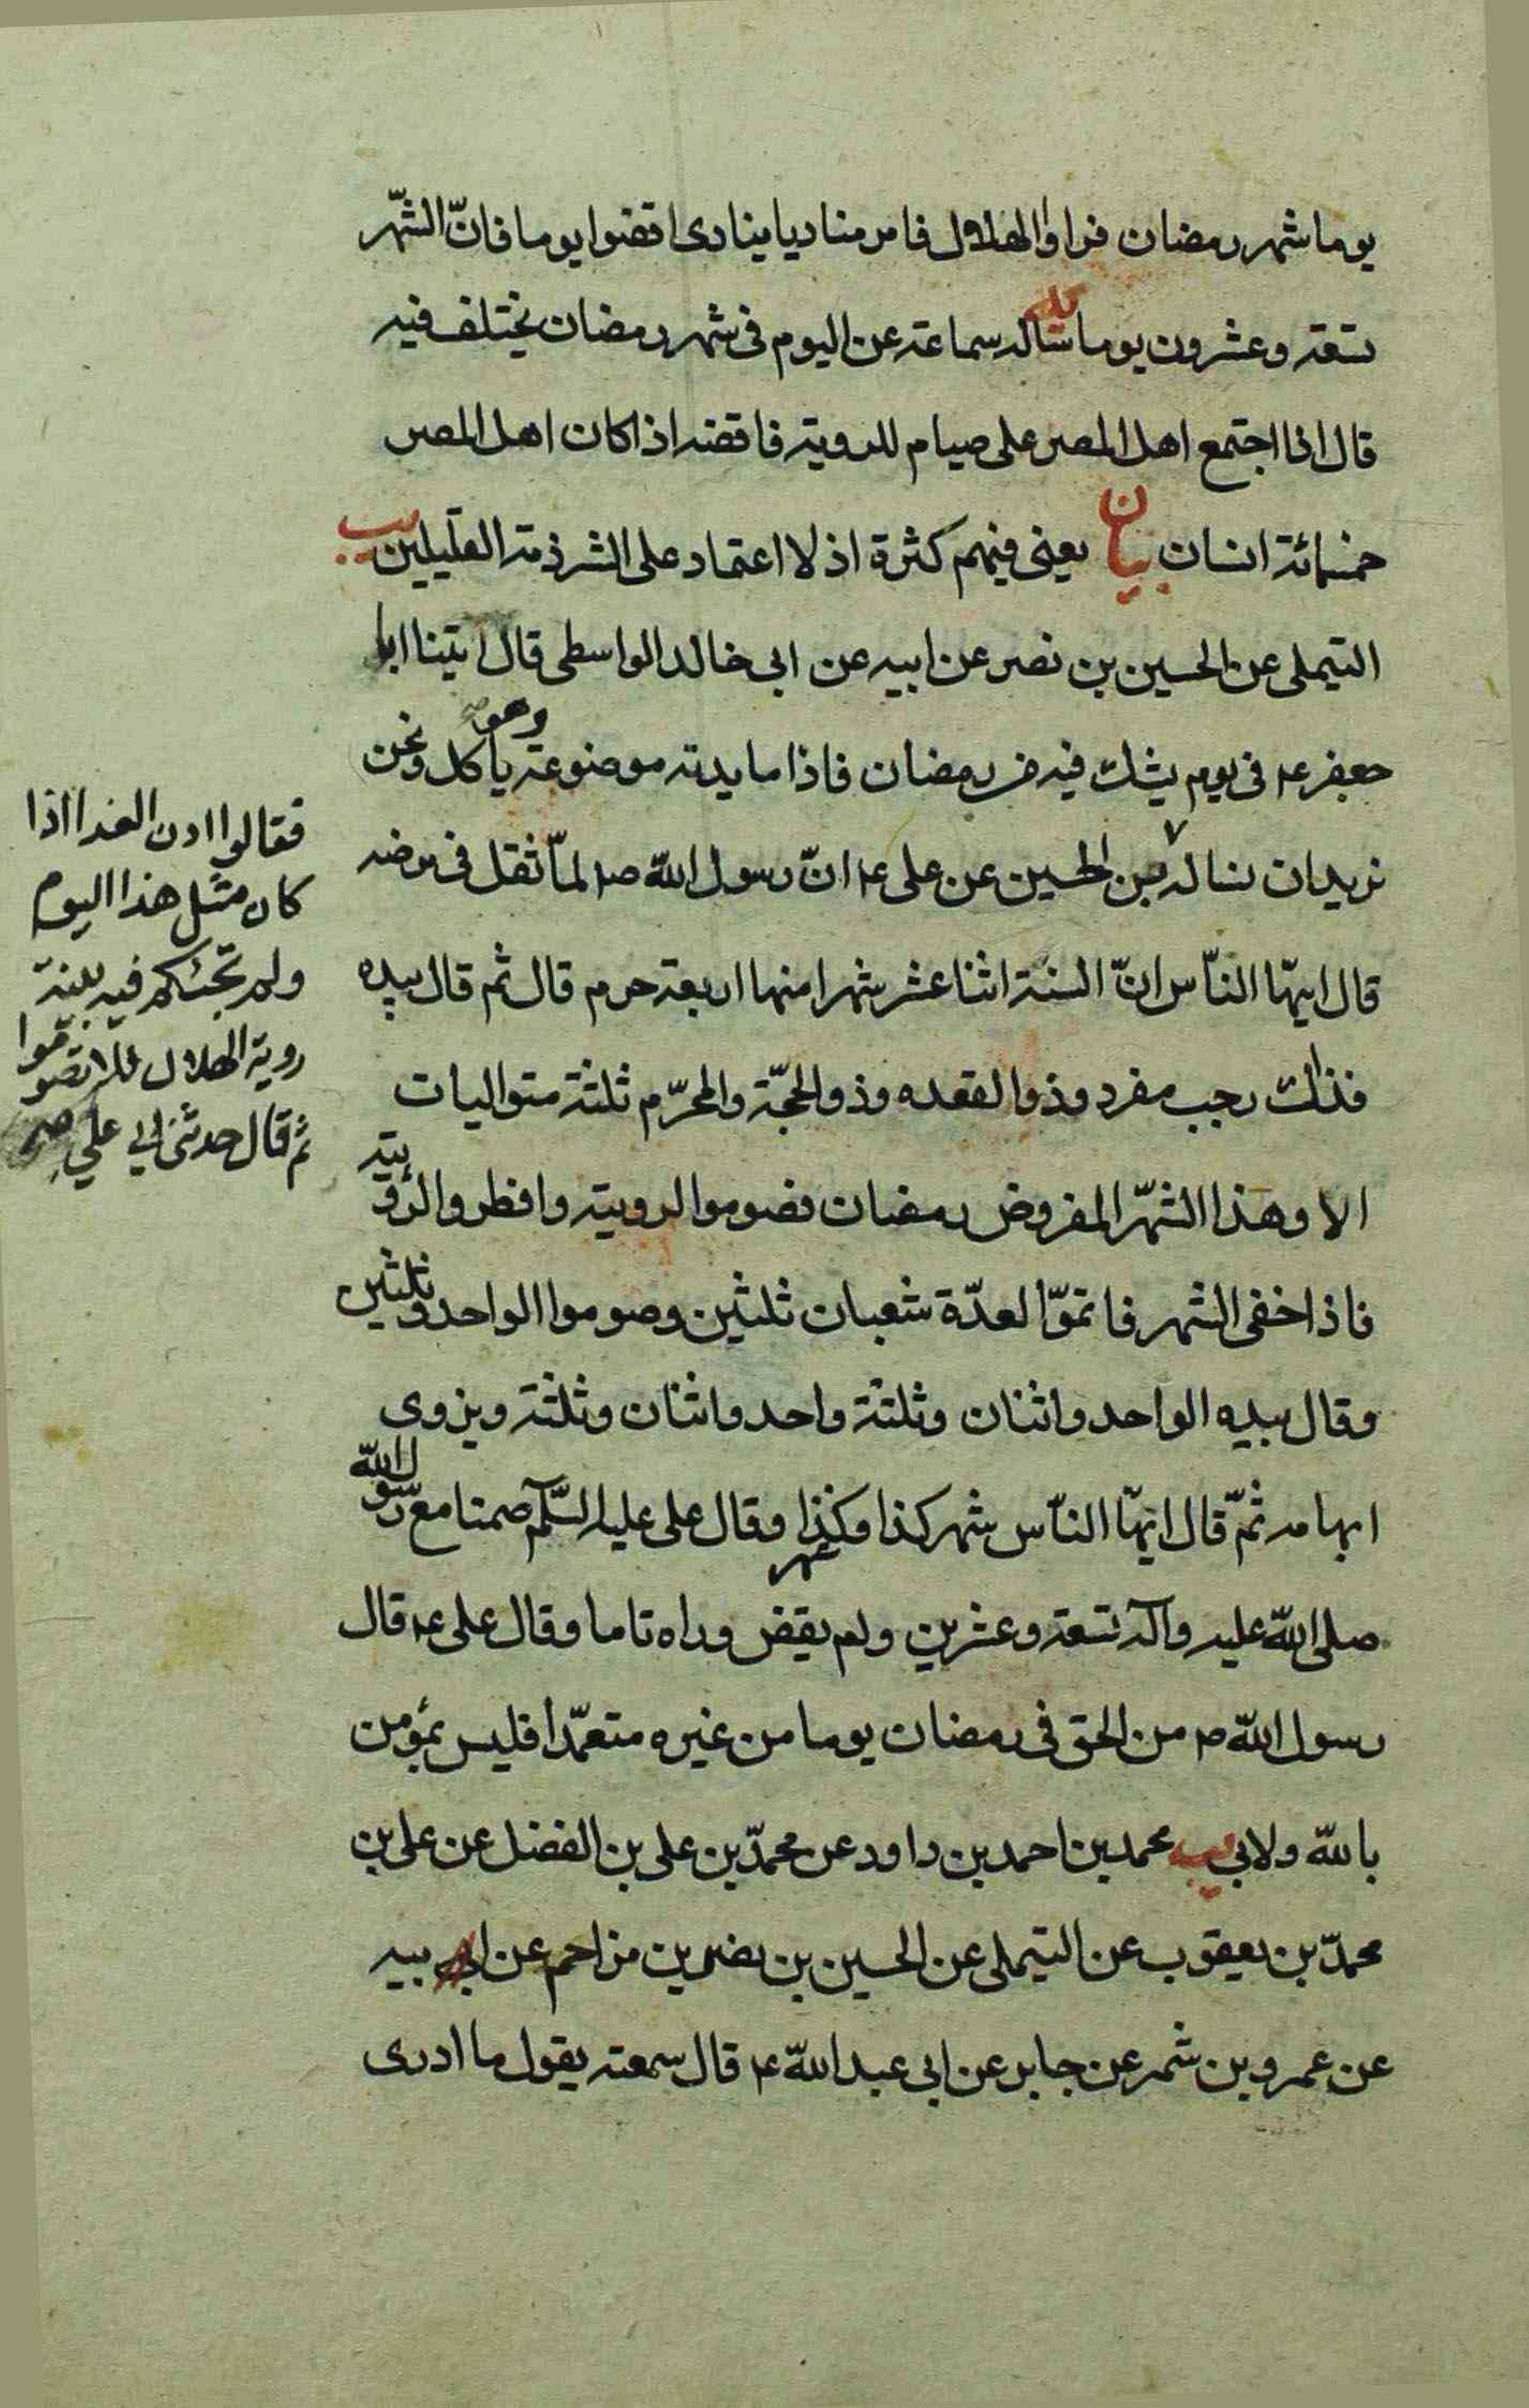 يوما شهر رمضان فراوا الهلال فامر مناديا ينادى اقضوا يوما فانّ الشّهر
تسعة وعشرون يوما يه ساله سماعة عن اليوم فى شهر رمضان يختلف فيه
قال اذا اجتمع اهل المصر على صيام للروية فاقضه اذا كان اهل المصر
خمسمائة انسان بيان يعنى فيهم كثرة اذ لا اعتماد على الشرذمة القليلين يب
التيملى عن الحسين بن نصر عن ابيه عن ابى خالد الواسطى قال اتينا ابا
جعفر ع فى يوم يشك فيه من رمضان فاذا مايدته موضوعة وهو ياكل ونحن
نريد ان نساله بن الحسين عن على ع انّ رسول اللّه ص لمّا ثقل فى مرضه
قال ايّها النّاس انّ السنة اثنا عشر شهرا منها اربعة حرم قال ثم قال بيده
فذلك رجب مفرد وذو القعده وذو الحجّة والمحرّم ثلثة متواليات
الا وهذا الشّهر المفروض رمضان فصوموا لرويته وافطروا لرؤيته
فاذا خفى الشهر فاتمّوا لعدّة شعبان ثلثين وصوموا الواحد وثلثين
وقال بيده الواحد واثنان وثلثة واحد واثنان وثلثة ويزوى
ابهامه ثمّ قال ايّها النّاس شهر كذا وشهر كذا وقال على عليه السّلم صمنا مع رسول اللّه
صلى اللّه عليه وآله تسعة وعشرين ولم يقض وراه تاما وقال على ع قال
رسول اللّه ص من الحق فى رمضان يوما من غيره متعمّدا فليس بمؤمن
باللّه ولا بى يب محمد بن احمد بن داود عن محمّد بن على بن الفضل عن على بن
محمّد بن يعقوب عن التيملى عن الحسين بن نصر بن مزاحم عن ابيه
عن عمرو بن شمر عن جابر عن ابى عبد اللّه ع قال سمعته يقول ما ادرى
فقالوا ادن الغدا اذا
كان مثل هذا اليوم
ولم تجئكم فيه بينة
روية الهلال فلا تصوموا
ثم قال حدثنى ابى على